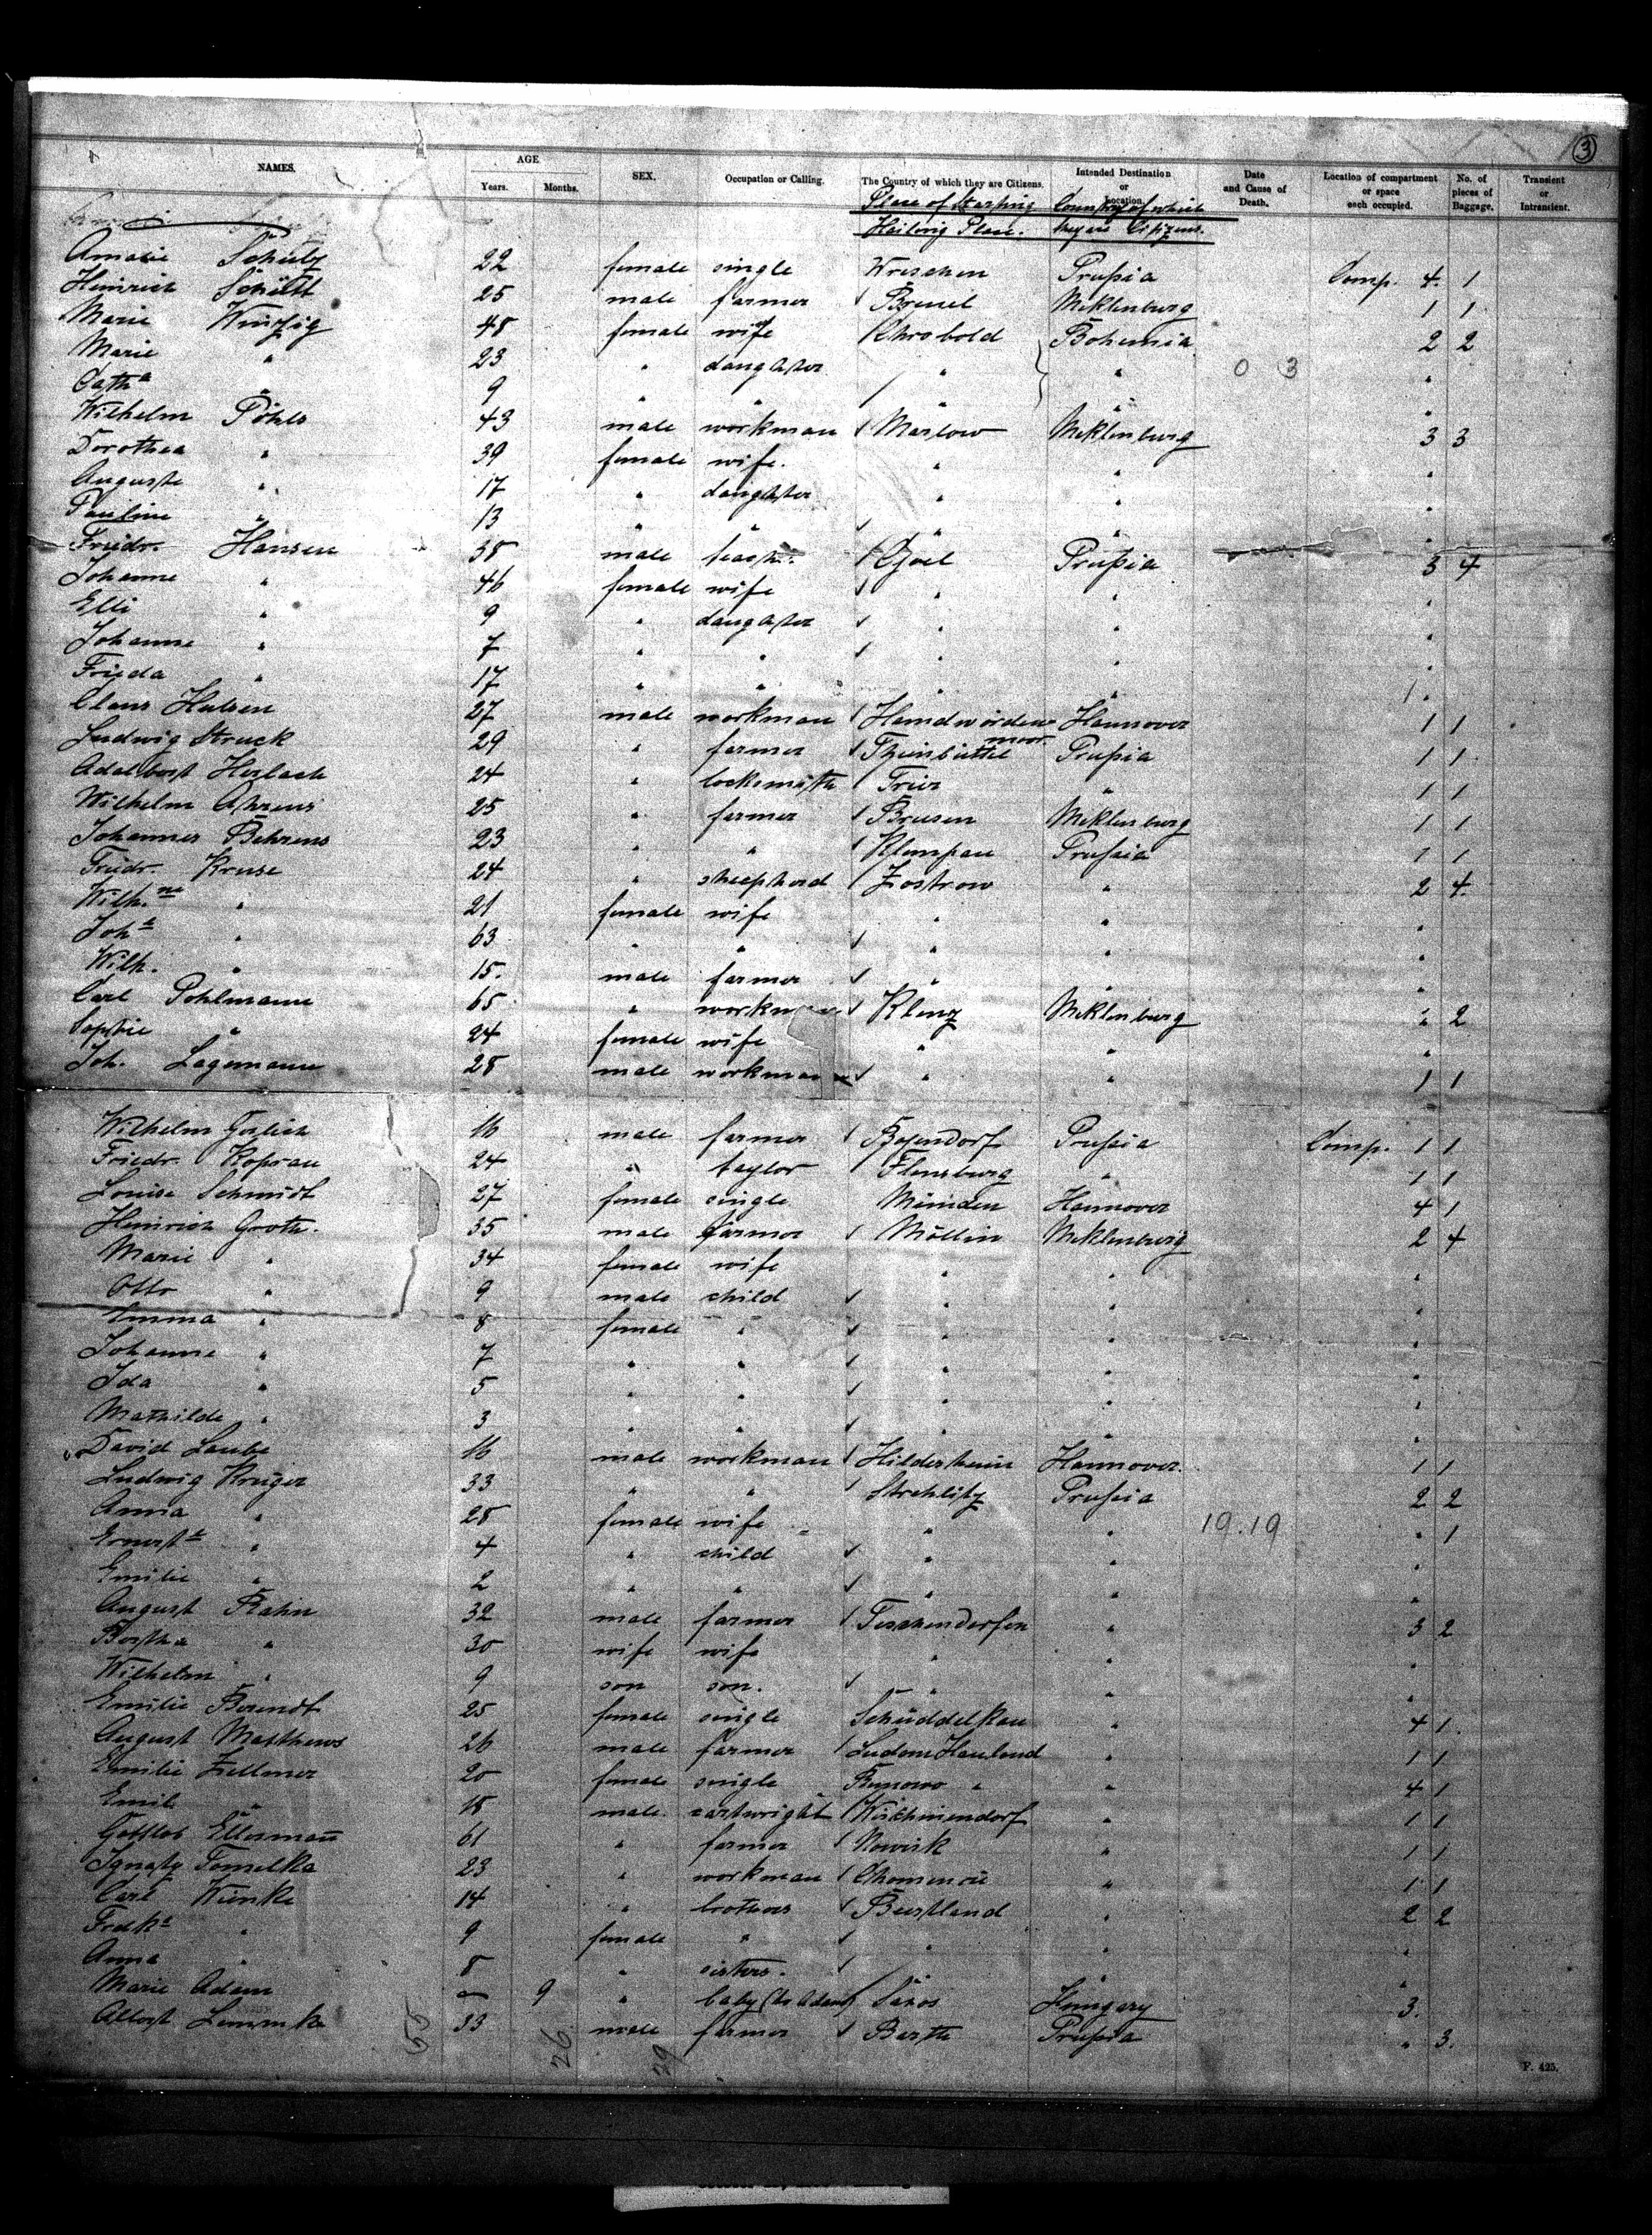 3
NAMES. AGE Years. Months. SEX. Occupation or Calling. The Country of which they are Citizens. Intended Destination or Location. Date and Cause of Death. Location of compartment or space each occupied. No. of pieces of Baggage. Transient or Intransient.
Place of Starting Country of which
Hailing Place. they are Citizens.
Amalie Schulz 22 female single Wreschen Prußia Comp. 4. 1
Heinrich Schütt 25 male farmer Meklenburg 1 1
Marie Winzig 48 female wife Chrobold Bohemia 2 2
Marie " 23 " daughter " " 0 3 "
Cath a " 9 " " " " "
Wilhelm Pöhls 43 male workman Marlow Meklenburg 3 3
Dorothea " 39 female wife. " " "
Auguste " 17 " daughter " " "
Pauline " 13 " " " " "
Friedr. Hansen 38 male Prußia 3 4
Johanne " 46 female wife " " "
Elli " 9 " daughter " " "
Johanne " 7 " " " " "
Frieda " 17 " " " " "
Claus Hulsen 27 male workman Hamelwördenmoor Hannover 1 1
Ludwig Struck 29 " farmer Prußia 1 1
Adalbert Herlach 24 " locksmith Trier " 1 1
Wilhelm Ahrens 25 " farmer Brusen Meklenburg 1 1
Johannes Behrens 23 " " Klempau Prußia 1 1
Friedr. Kruse 24 " sheepherd Zostrow " 2 4
Wilh. ne " 21 female wife " " "
Joh a " 63 " " " " "
Wilh. " 15. male farmer " " "
Carl Pohlmann 65 " workman Klenz Meklenburg " 2
Sophie " 24 female wife " " "
Joh. Lagemann 28 male workman " " 1 1
Wilhelm Gerlich 16 male farmer Bojendorf Prußia Comp. 1 1
Friedr. Kopsau 24 " taylor Flensburg " 1 1
Louise Schmidt 27 female single Münden Hannover 4 1
Heinrich Groth. 35 male farmer Möllin Meklenburg 2 4
Marie " 34 female wife " " "
Otto " 9 male child " " "
Emma " 8 female " " " "
Johanne " 7 " " " " "
Ida " 5 " " " " "
Mathilde " 3 " " " " "
David Laube 16 male workman Hildesheim Hannover. 1 1
Ludwig Krüger 33 " " Strehlitz Prußia 2 2
Anna " 28 female wife " " 19.19 " 1
Ernest e " 4 " child " " "
Emilie " 2 " " " " "
August Rahn 32 male farmer Teschendorfen " 3 2
Bertha " 30 wife wife " " "
Wilhelm " 9 son son. " " "
Emilie Berendt 25 female single Schüddelkau " 4 1.
August Matthews 26 male farmer Ludom Hauland " 1 1
Emilie Zellmer 20 female single " " 4 1
Emil " 18 male. cartwright Wirthinendorf " 1 1
Gottlob Ellerman 61 " farmer Nowisk " 1 1
Ignatz Tomelka 23 " workman " 1 1
Carl Wienke 14 " brothers Beestland " 2 2
Fredke " 9 female " " " "
Anna " 8 " sisters. " " "
Marie Adam — 9 " baby (to Adam) Saros Hungary 3.
Albert Lemmke 33 male farmer Barth Prußia " 3.
55 26 29
F. 425.